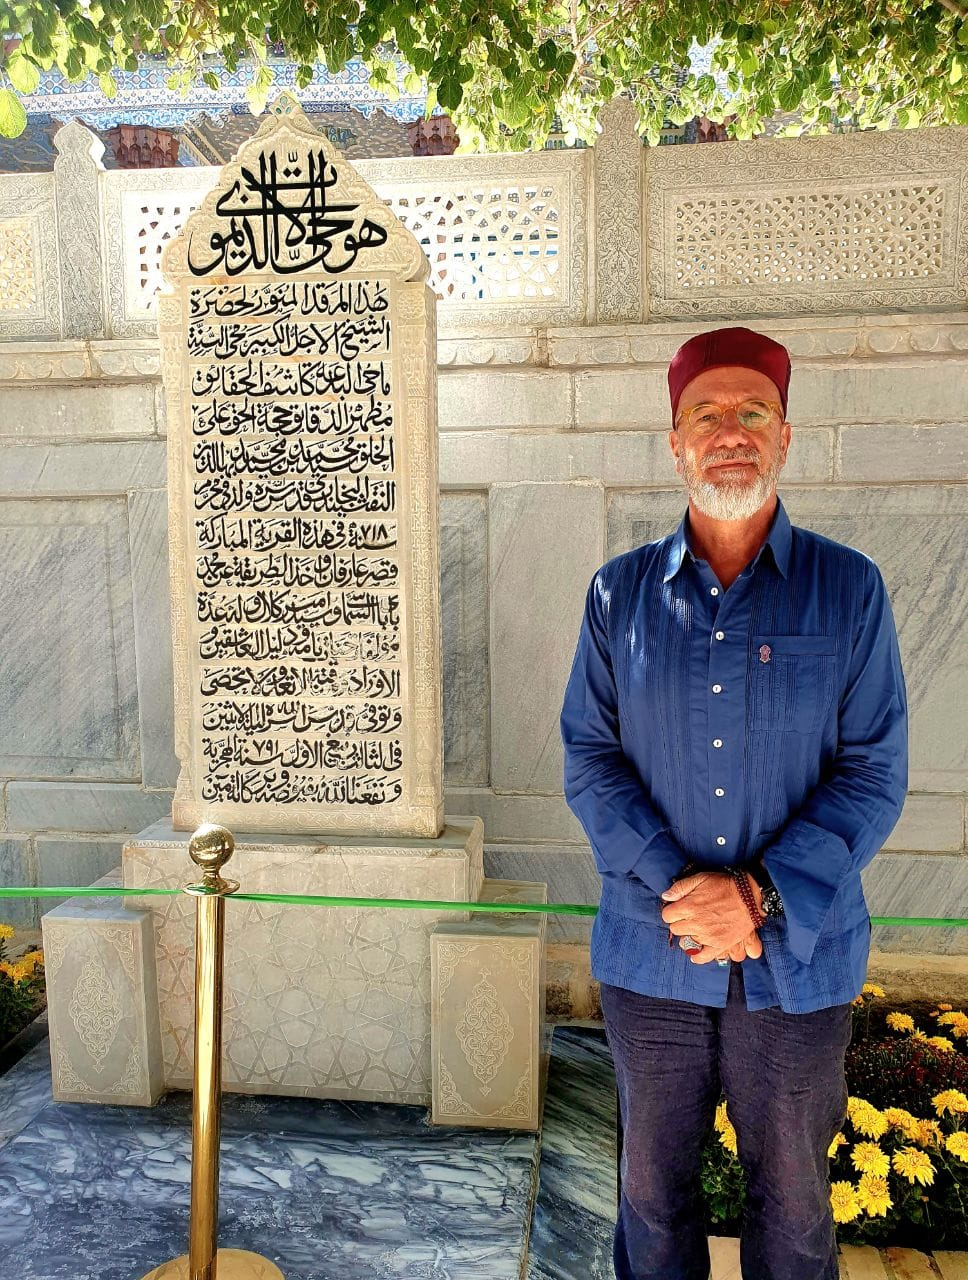 هو الحي الذي لا يموت
هذا المرقد المنور لحضرة
الشيخ الاجل الكبير محى السنة
ماحى البدعة كاشف الحقائق
مظهر الدقائق حجة الحق على
الخلق محمد بن محمد بهاالدين
النقشبند البخارى قدس سره ولد فى محرم
سنة ٧١٨ فى هذه القرية المباركة
قصر عارفان واخذ الطريقة عن محمد
بابا السماسى و سيد امير كلال وله عدة
دليل العاشقين و
الاوراد
وتوفى قدس الله سره ليلة الاثنين
فى الثالث ربيع الاول سنة ٧٩١ الهجرية
ونفعنا الله بفيوضه وبركاته آمين